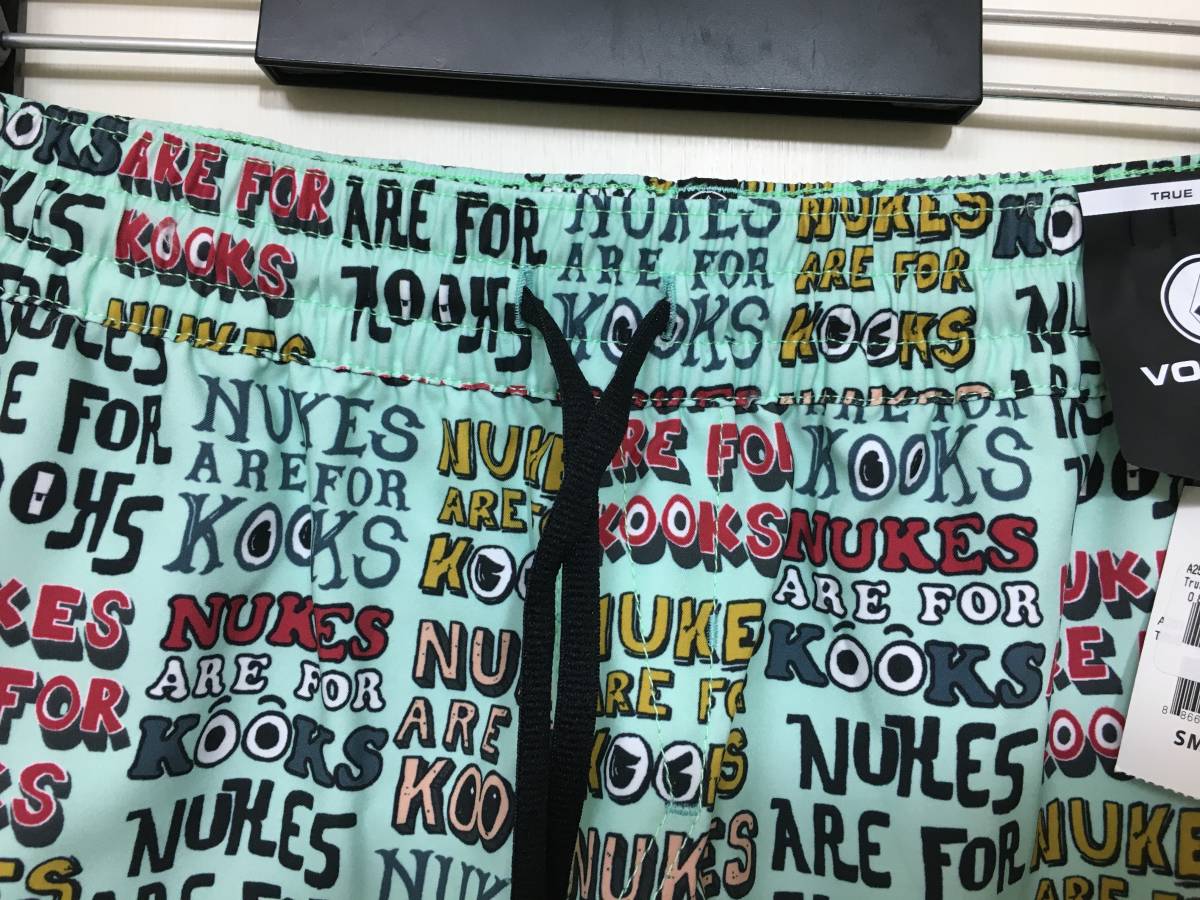 KOOKS
ARE FOR
KOOKS
ARE FOR
KOOKS
NUKES
ARE FOR
KOOKS
NUKES
ARE FOR
KOOKS
TRUE
VO
FOR
KOOKS
NUKES
NUKES
ARE FOR
KOOKS
NUKES
ARE
ARE FOR
KOOKS
ARE FOR
KOOKS
NUKES
ARE FOR
KOOKS
NUKES
ARE FOR
KOOKS
NUKES
ARE
KOO
NUKE
ARE FO
KOOKS
FOR
NUKES
NUKES
ARE FOR
NUKES
NUKE
SM